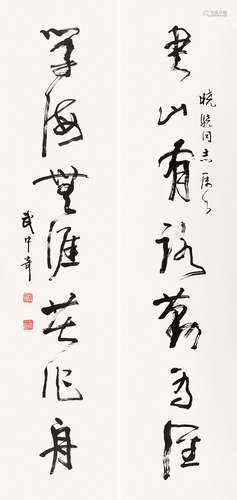 書山有路勤為徑
同志
學海無涯苦作舟
武中奇